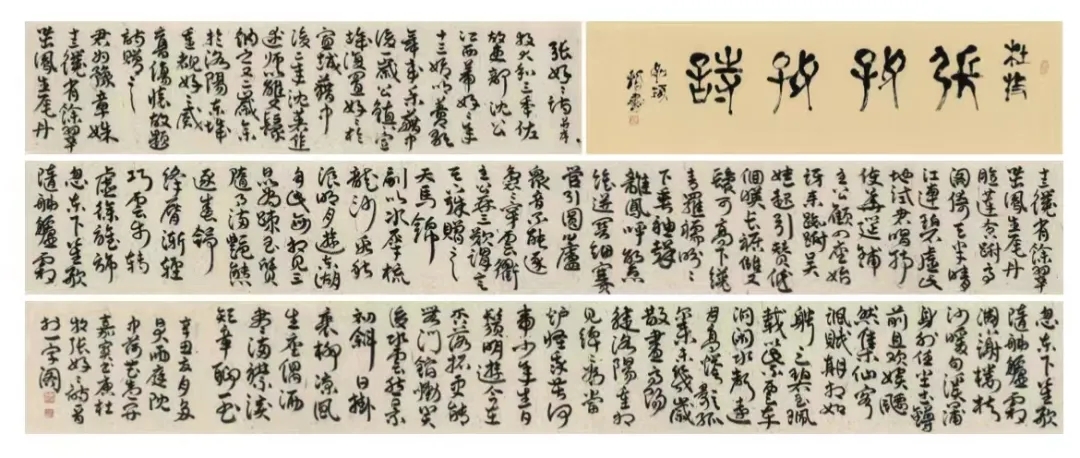 杜牧
張好好詩
張好好詩並序
牧大和三年佐
故吏部沈公
江西幕好好年
十三始以善歌
來樂籍中
後一歲公鎮宣
城復置好好於
宣城籍中
後二歲沈著作
述師以雙鬟
納之又二歲余
於洛陽東城
重覩好好感
舊傷懷故題
詩贈之
君為豫章姝
十三纔有餘翠
茁鳳生尾丹
十三纔有餘翠
茁鳳生尾丹
臉蓮含跗高
閣倚天半晴
江連碧虛此
地試君唱特
使華筵鋪
主公顧四座始
訝來踟躕吳
娃起引贊低
佪映長裾雙
鬟可高下纔過
青羅襦盼盼
下垂袖一聲
離鳳呼繁弦
迸關紐塞
管引圓蘆
眾音不能逐
裊裊穿雲衢
主公再三歎謂言
天下殊贈之
天馬錦
副以水犀梳
龍沙看秋
浪明月遊東湖
自此每相見三
日為疏玉質
隨月滿艷態
逐春舒
絳脣漸輕
巧雲步轉
虛徐旌旆
忽東下笙歌
隨舳艫霜
忽東下笙歌
隨舳艫霜
凋謝樓樹
沙暖句溪蒲
身外任塵土罇
前且歡娛飄
然集仙客
諷賦期相如
聘之碧玉珮
載以紫雲車
洞閉水聲遠
月高蟾影孤
爾來未幾歲
散盡高陽
徒洛陽重相
見綽綽為當
壚怪我苦何
事少年生白
鬚朋遊今在
否落拓更能
無門館慟哭
後水雲愁景
初斜日掛
衰柳涼風
生座隅灑
盡滿襟淚
短章聊一書
辛丑
杜
牧張好好詩